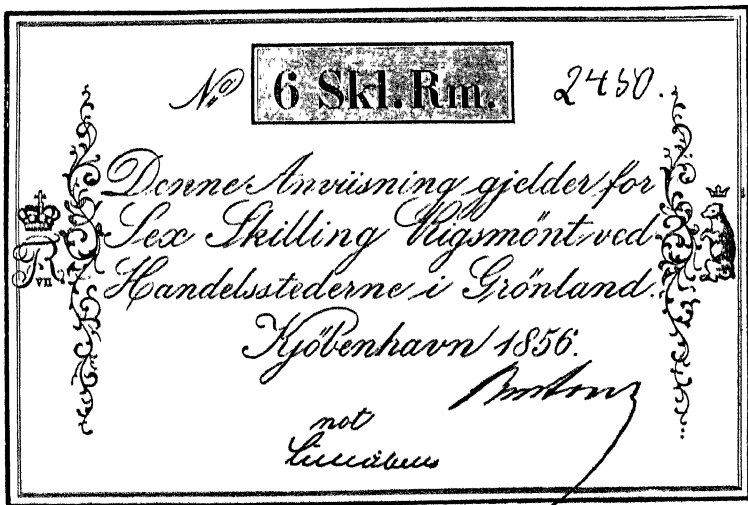 No 6 Skl. Rm. 2450.
Denne Anviisning gjelder for
Sex Skilling Rigsmönt ved
Handelsstederne i Grönland.
Kjöbenhavn 1856.
VII
not